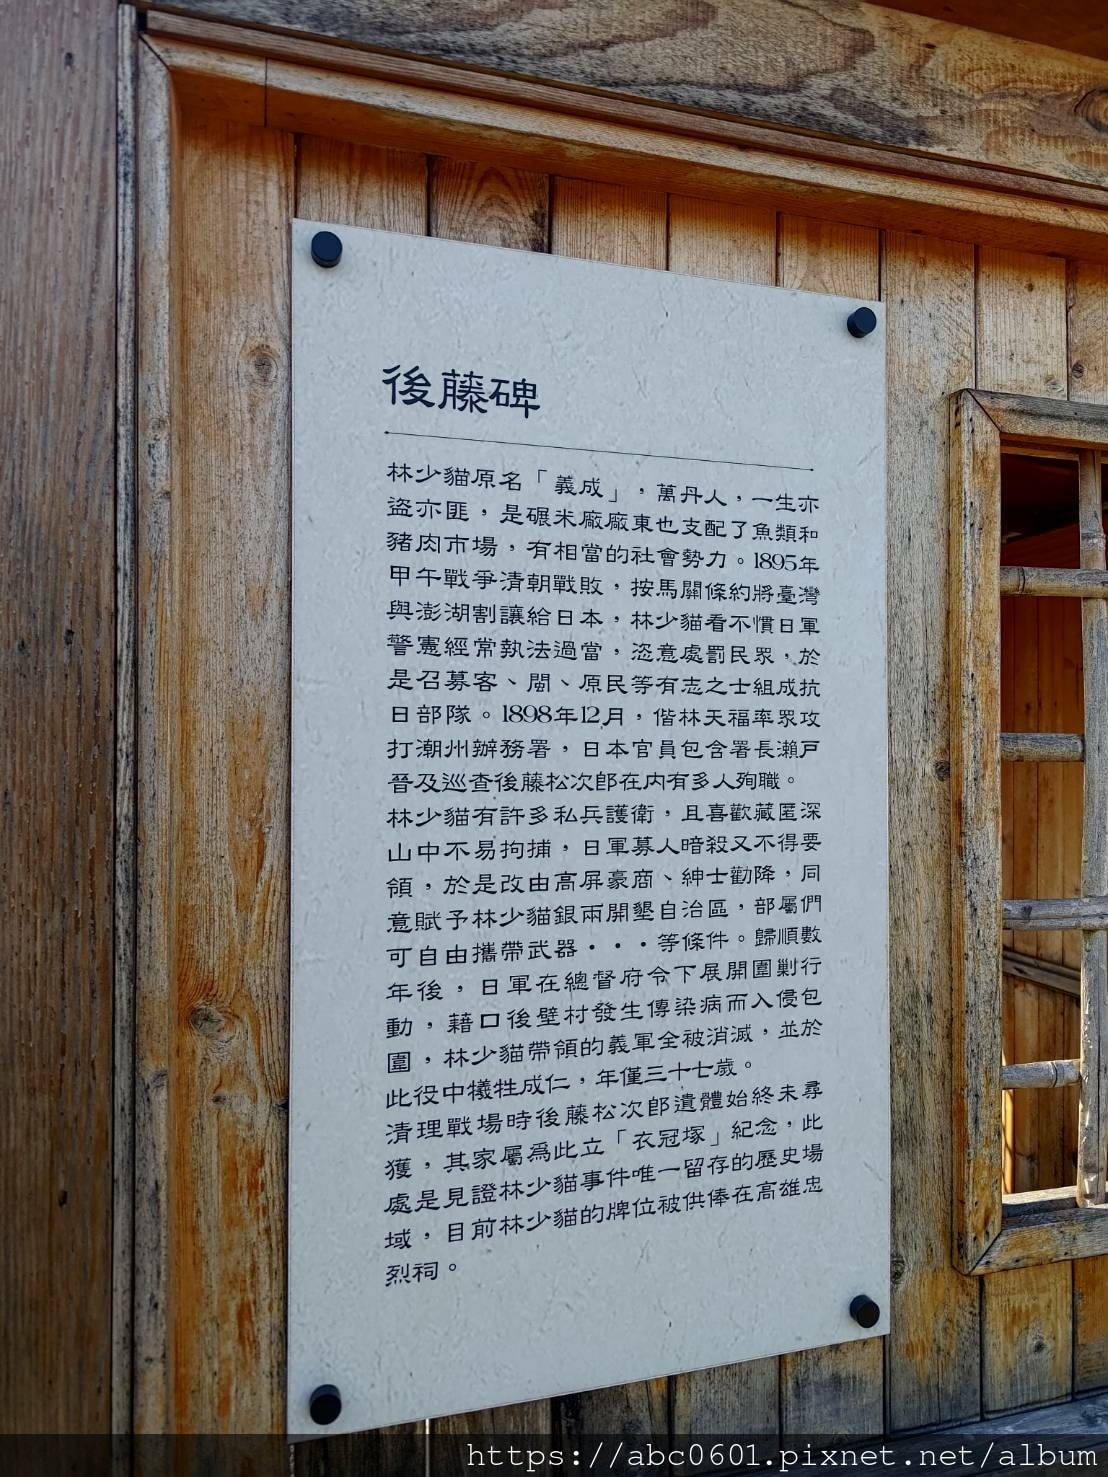 後藤碑
林少貓原名「義成」，萬丹人，一生亦
盜亦匪，是碾米廠廠東也支配了魚類和
豬肉市場，有相當的社會勢力。1895年
甲午戰爭清朝戰敗，按馬關條約將臺灣
與澎湖割讓給日本，林少貓看不慣日軍
警憲經常執法過當，恣意處罰民眾，於
是召募客、閩、原民等有志之士組成抗
日部隊。1898年12月，偕林天福率眾攻
打潮州辦務署，日本官員包含署長瀨戶
晉及巡查後藤松次郎在內有多人殉職。
林少貓有許多私兵護衛，且喜歡藏匿深
山中不易拘捕，日軍募人暗殺又不得要
領，於是改由高屏豪商、紳士勸降，同
意賦予林少貓銀兩開墾自治區，部屬們
可自由攜帶武器・・・等條件。歸順數
年後，日軍在總督府令下展開圍剿行
動，藉口後壁村發生傳染病而入侵包
圍，林少貓帶領的義軍全被消滅，並於
此役中犧牲成仁，年僅三十七歲。
清理戰場時後藤松次郎遺體始終未尋
獲，其家屬為此立「衣冠塚」紀念，此
處是見證林少貓事件唯一留存的歷史場
域，目前林少貓的牌位被供俸在高雄忠
烈祠。
https://abc0601.pixnet.net/album